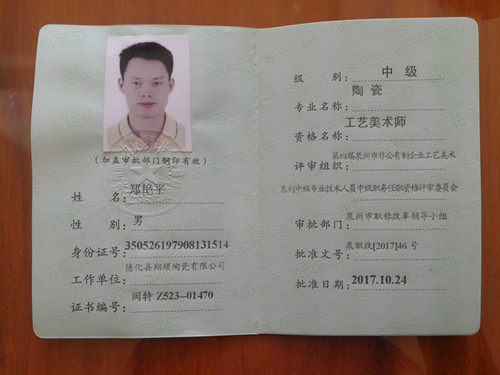 (加盖审批部门钢印有效)
姓 名: 郑艳平
性 别: 男
身份证号: 350526197908131514
工作单位: 德化县翔顺陶瓷有限公司
证书编号: 闽特 Z523-01470
级 别: 中 级
专业名称: 陶 瓷
资格名称: 工艺美术师
评审组织: 第四届泉州市非公有制企业工艺美术
系列中级专业技术人员中级职务任职资格评审委员会
审批部门: 泉州市职称改革领导小组
批准文号: 泉职改[2017]46 号
批准日期: 2017.10.24